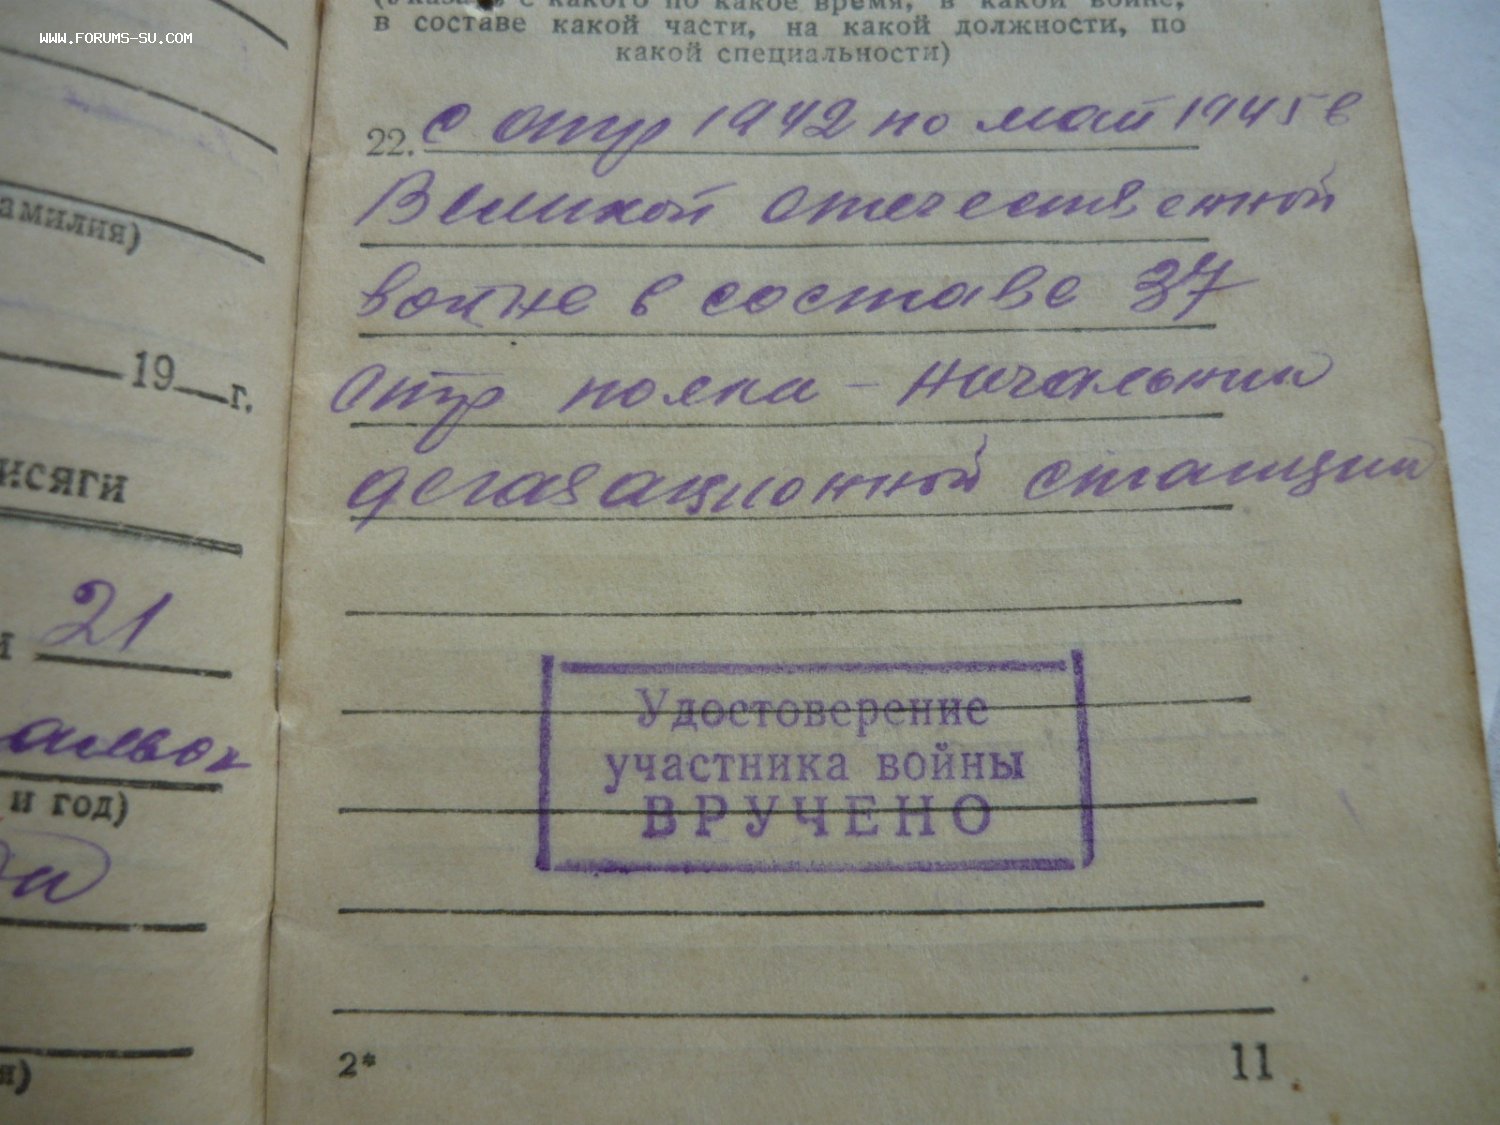 WWW.FORUMS-SU.COM
с какого по какое время, в какой войне,
в составе какой части, на какой должности, по
какой специальности)
22. с апр 1942 по май 1945 в
Великой отечественной
войне в составе 37
отр полка - начальник
дегазационной станции
Удостоверение
участника войны
ВРУЧЕНО
2*
11
амилия)
19 г.
исяги
и 21
и год)